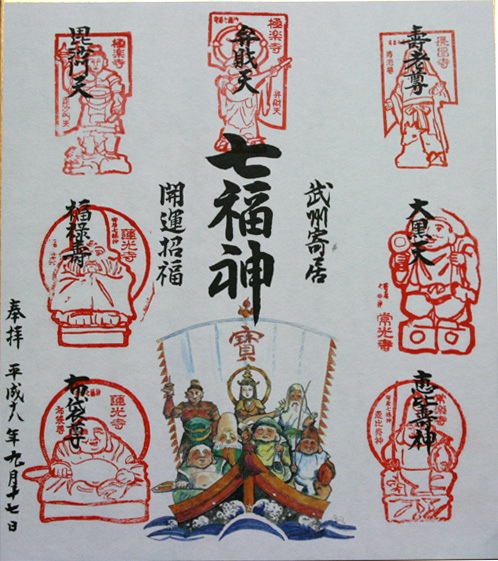 寿老尊
長昌寺
弁財天
極楽寺
弁財天
毘沙門天
極楽寺
毘沙門天
七福神
武州寄居
開運招福
大黒天
常光寺
福禄寿
蓮光寺
恵比寿神
常楽寺
恵比寿神
布袋尊
蓮光寺
布袋尊
寶
奉拝 平成十八年九月十七日